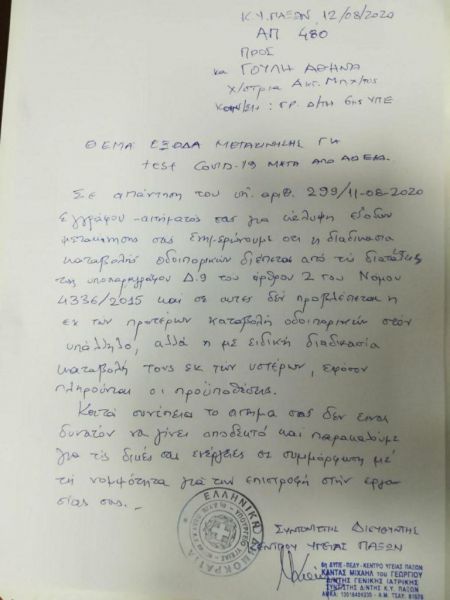 Κ.Υ. ΠΑΞΩΝ, 12/08/2020
ΑΠ 480
ΠΡΟΣ
κα ΓΟΥΛΗ ΑΘΗΝΑ
Χ/στρια Ακτ. Μηχ/τος
Κοιν/ση: ΓΡ. Δ/ΤΗ 6ης ΥΠΕ
ΘΕΜΑ ΕΞΟΔΑ ΜΕΤΑΚΙΝΗΣΗΣ ΓΙΑ
test COVID-19 ΜΕΤΑ ΑΠΟ ΑΔΕΙΑ.
Σε απάντηση του υπ. αριθ. 299/11-08-2020
εγγράφου - αιτήματός σας για κάλυψη εξόδων
μετακίνησης σας ενημερώνουμε οτι η διαδικασια
καταβολής οδοιπορικών διέπεται από τις διατάξεις
της υποπαραγράφου Δ.9 του άρθρου 2 του Νόμου
4336/2015 και σε αυτες δεν προβλέπεται η
εκ των προτέρων καταβολή οδοιπορικών στον
υπάλληλο, αλλά η με ειδική διαδικασία
καταβολή τους εκ των υστέρων, εφόσον
πληρούνται οι προϋποθέσεις.
Κατά συνέπεια το αιτημα σας δεν ειναι
δυνατόν να γίνει αποδεκτό και παρακαλούμε
για τις δικές σας ενέργειες σε συμμόρφωση με
τη νομιμότητα για την επιστροφή στην εργα-
σίας σας.-
ΕΛΛΗΝΙΚΗ ΔΗΜΟΚΡΑΤΙΑ
ΣΥΝΤΟΝΙΣΤΗΣ ΔΙΕΥΘΥΝΤΗΣ
ΚΕΝΤΡΟΥ ΥΓΕΙΑΣ ΠΑΞΩΝ
6η ΔΥΠΕ - ΠΕΔΥ - ΚΕΝΤΡΟ ΥΓΕΙΑΣ ΠΑΞΩΝ
ΚΑΝΤΑΣ ΜΙΧΑΗΛ του ΓΕΩΡΓΙΟΥ
Δ/ΝΤΗΣ ΓΕΝΙΚΗΣ ΙΑΤΡΙΚΗΣ
ΣΥΝ/ΣΤΗΣ Δ/ΝΤΗΣ Κ.Υ. ΠΑΞΩΝ